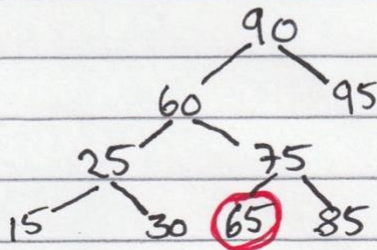 90
60 95
25 75
15 30 65 85